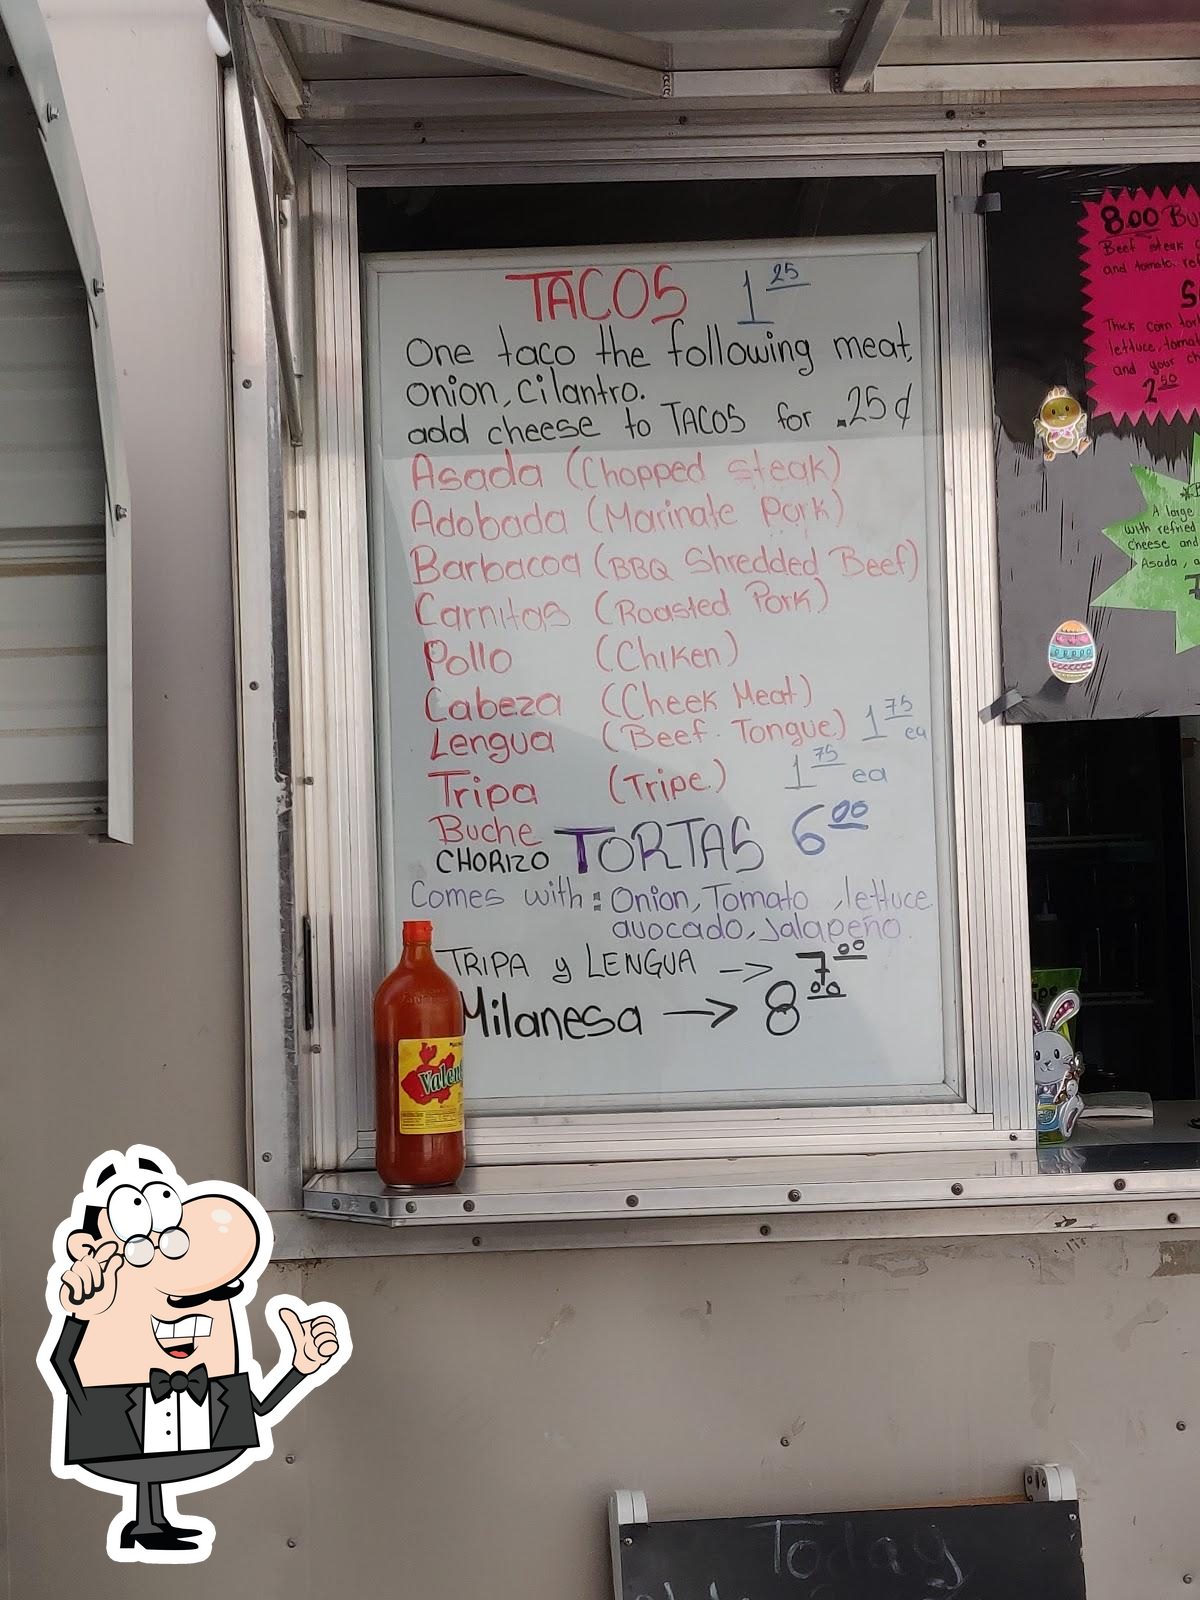 TACOS 1 25
One taco the following meat,
onion, cilantro.
add cheese to TACOS for .25¢
Asada (Chopped steak)
Adobada (Marinate Pork)
Barbacoa (BBQ Shredded Beef)
Carnitas (Roasted Pork)
Pollo (Chiken)
Cabeza (Cheek Meat)
Lengua (Beef Tongue) 1 75 ea
Tripa (Tripe) 1 75 ea
Buche
CHORIZO TORTAS 6 00
Comes with: Onion, Tomato, lettuce
avocado, Jalapeño.
TRIPA y LENGUA -> 7 00
Milanesa -> 8 00
8.00 Bu
Beef steak
and tomato. ref
Thick corn tort
lettuce, tomat
and your ch
2 50
A large
with refried
Cheese and
Asada, a
7
Valen
Today